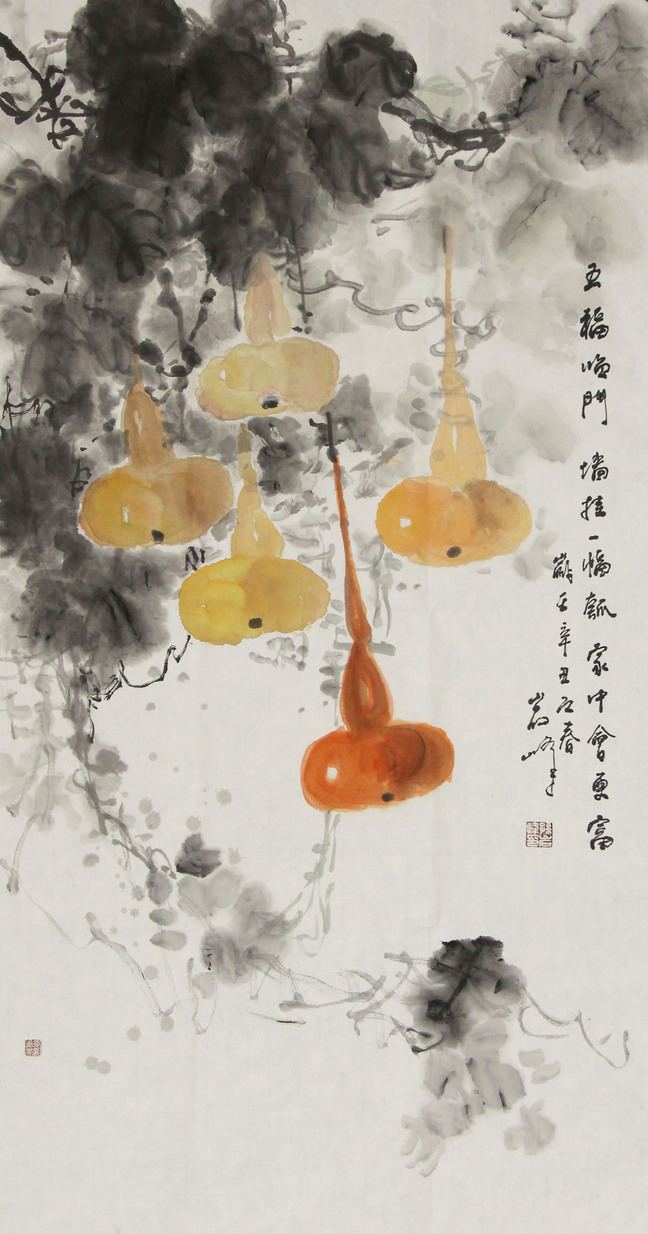 五福临門 墙挂一幅瓢 家中會更富
歲于辛丑之春
峰